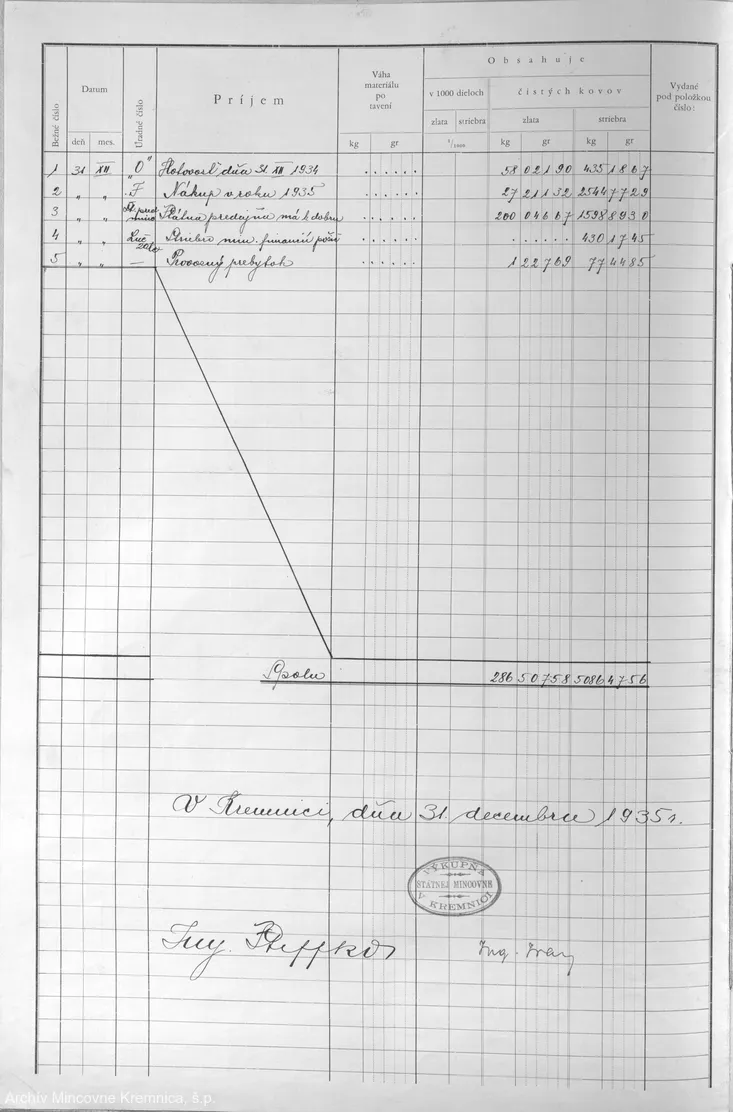 Obsahuje
Bežné číslo Datum Úradné číslo Príjem Váha materiálu po tavení v 1000 dieloch čistých kovov Vydané pod položkou číslo:
zlata striebra zlata striebra
deň mes. kg gr ¹/1000 kg gr kg gr
1 31 XII. „O" Hotovosť dňa 31. XII 1934 . . . . . . 58 02190 435 1867
2 „ „ F Nákup v roku 1935 . . . . . . 27 21132 2544 7729
3 „ „ Štátna predajňa má k dobru . . . . . . 200 04667 1598 8930
4 „ „ Striebro min. financií . . . . . . . . . . . . 430 1745
5 „ „ — prebytok . . . . . . 1 22769 77 4485
Spolu 286 50758 5086 4756
V Kremnici, dňa 31. decembra 1935.
VÝKUPŇA
ŠTÁTNEJ MINCOVNE
V KREMNICI
Ing.
Ing.
Archív Mincovne Kremnica, š.p.